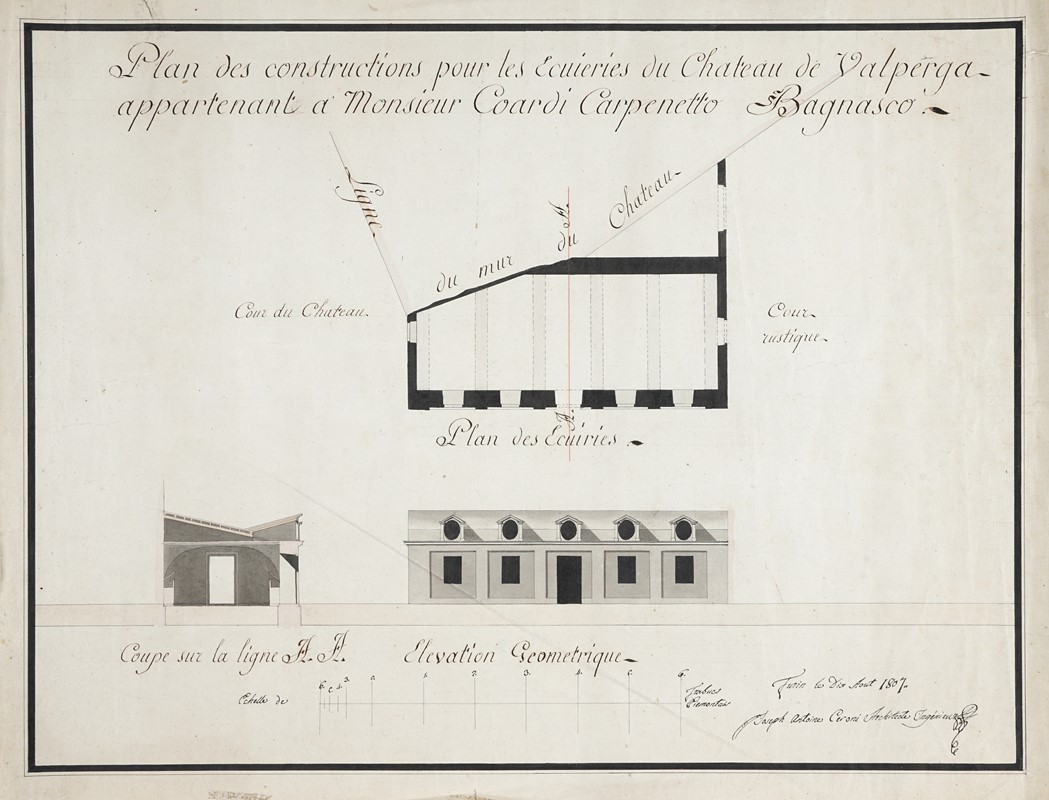 Plan des constructions pour les Ecuieries du Chateau de Valperga
appartenant a Monsieur Coardi Carpenetto Bagnasco.
Ligne
du mur
du
Chateau
A.
Cour du Chateau
Cour
rustique
A.
Plan des Ecuiries
Coupe sur la ligne A. A.
Elevation Geometrique
Echelle de
6. 3. 0. 1. 2. 3. 4. 5. 6.
Trabucs
Piemontais
Turin le Dix Aout 1807.
Joseph Antoine Ceroni Architecte Ingénieur